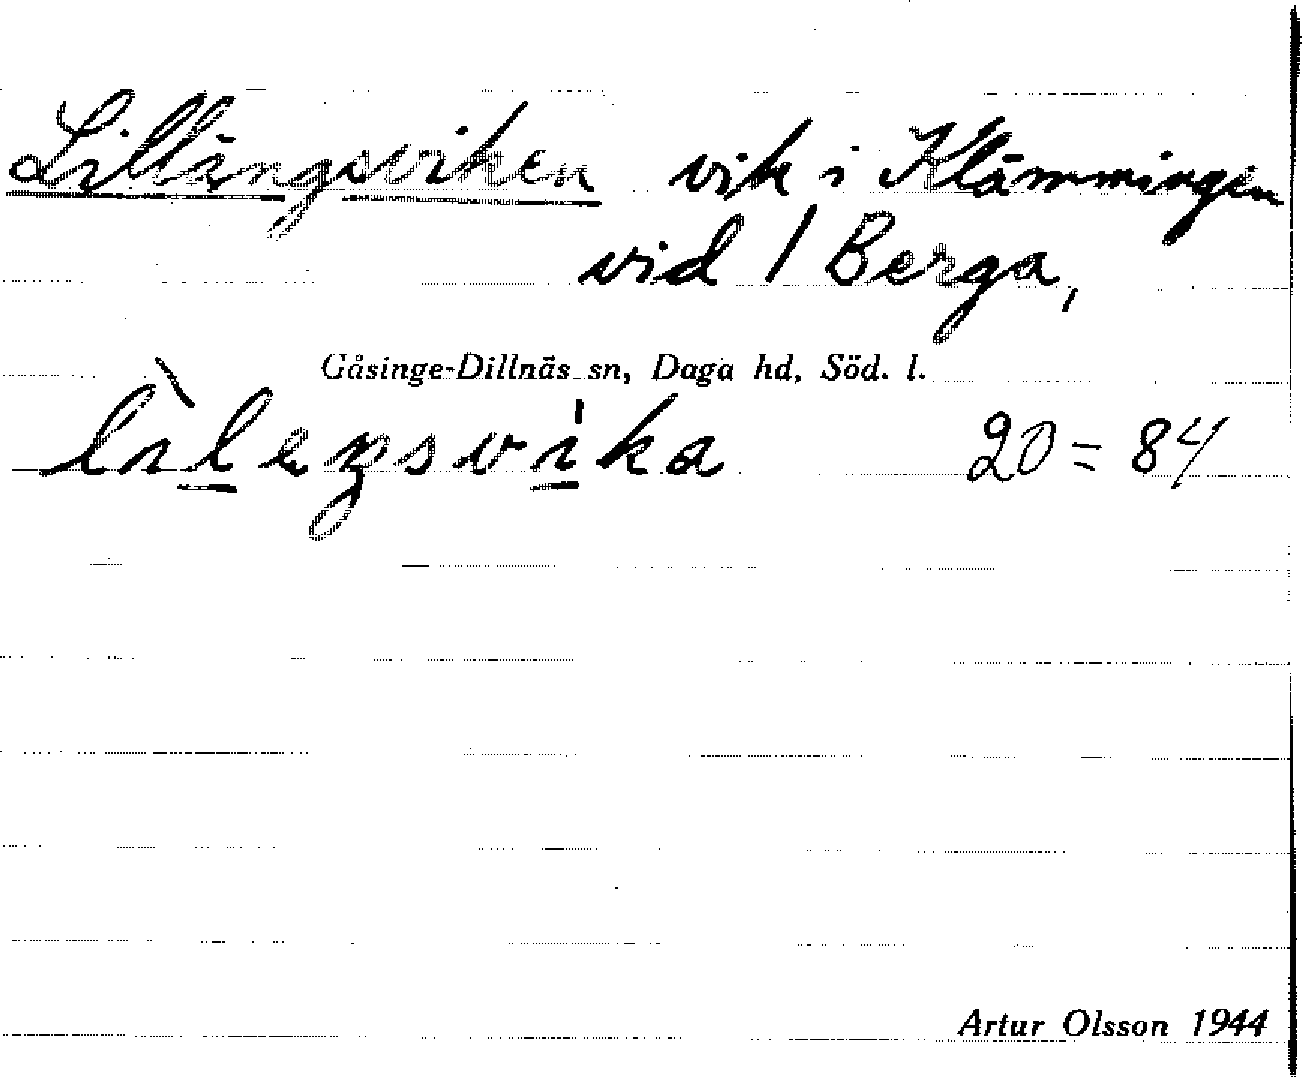 Lillängsviken vik i Klämmingen
vid 1 Berga,
Gåsinge-Dillnäs sn, Daga hd, Söd. l.
lìleŋsvika 20 = 84
Artur Olsson 1944